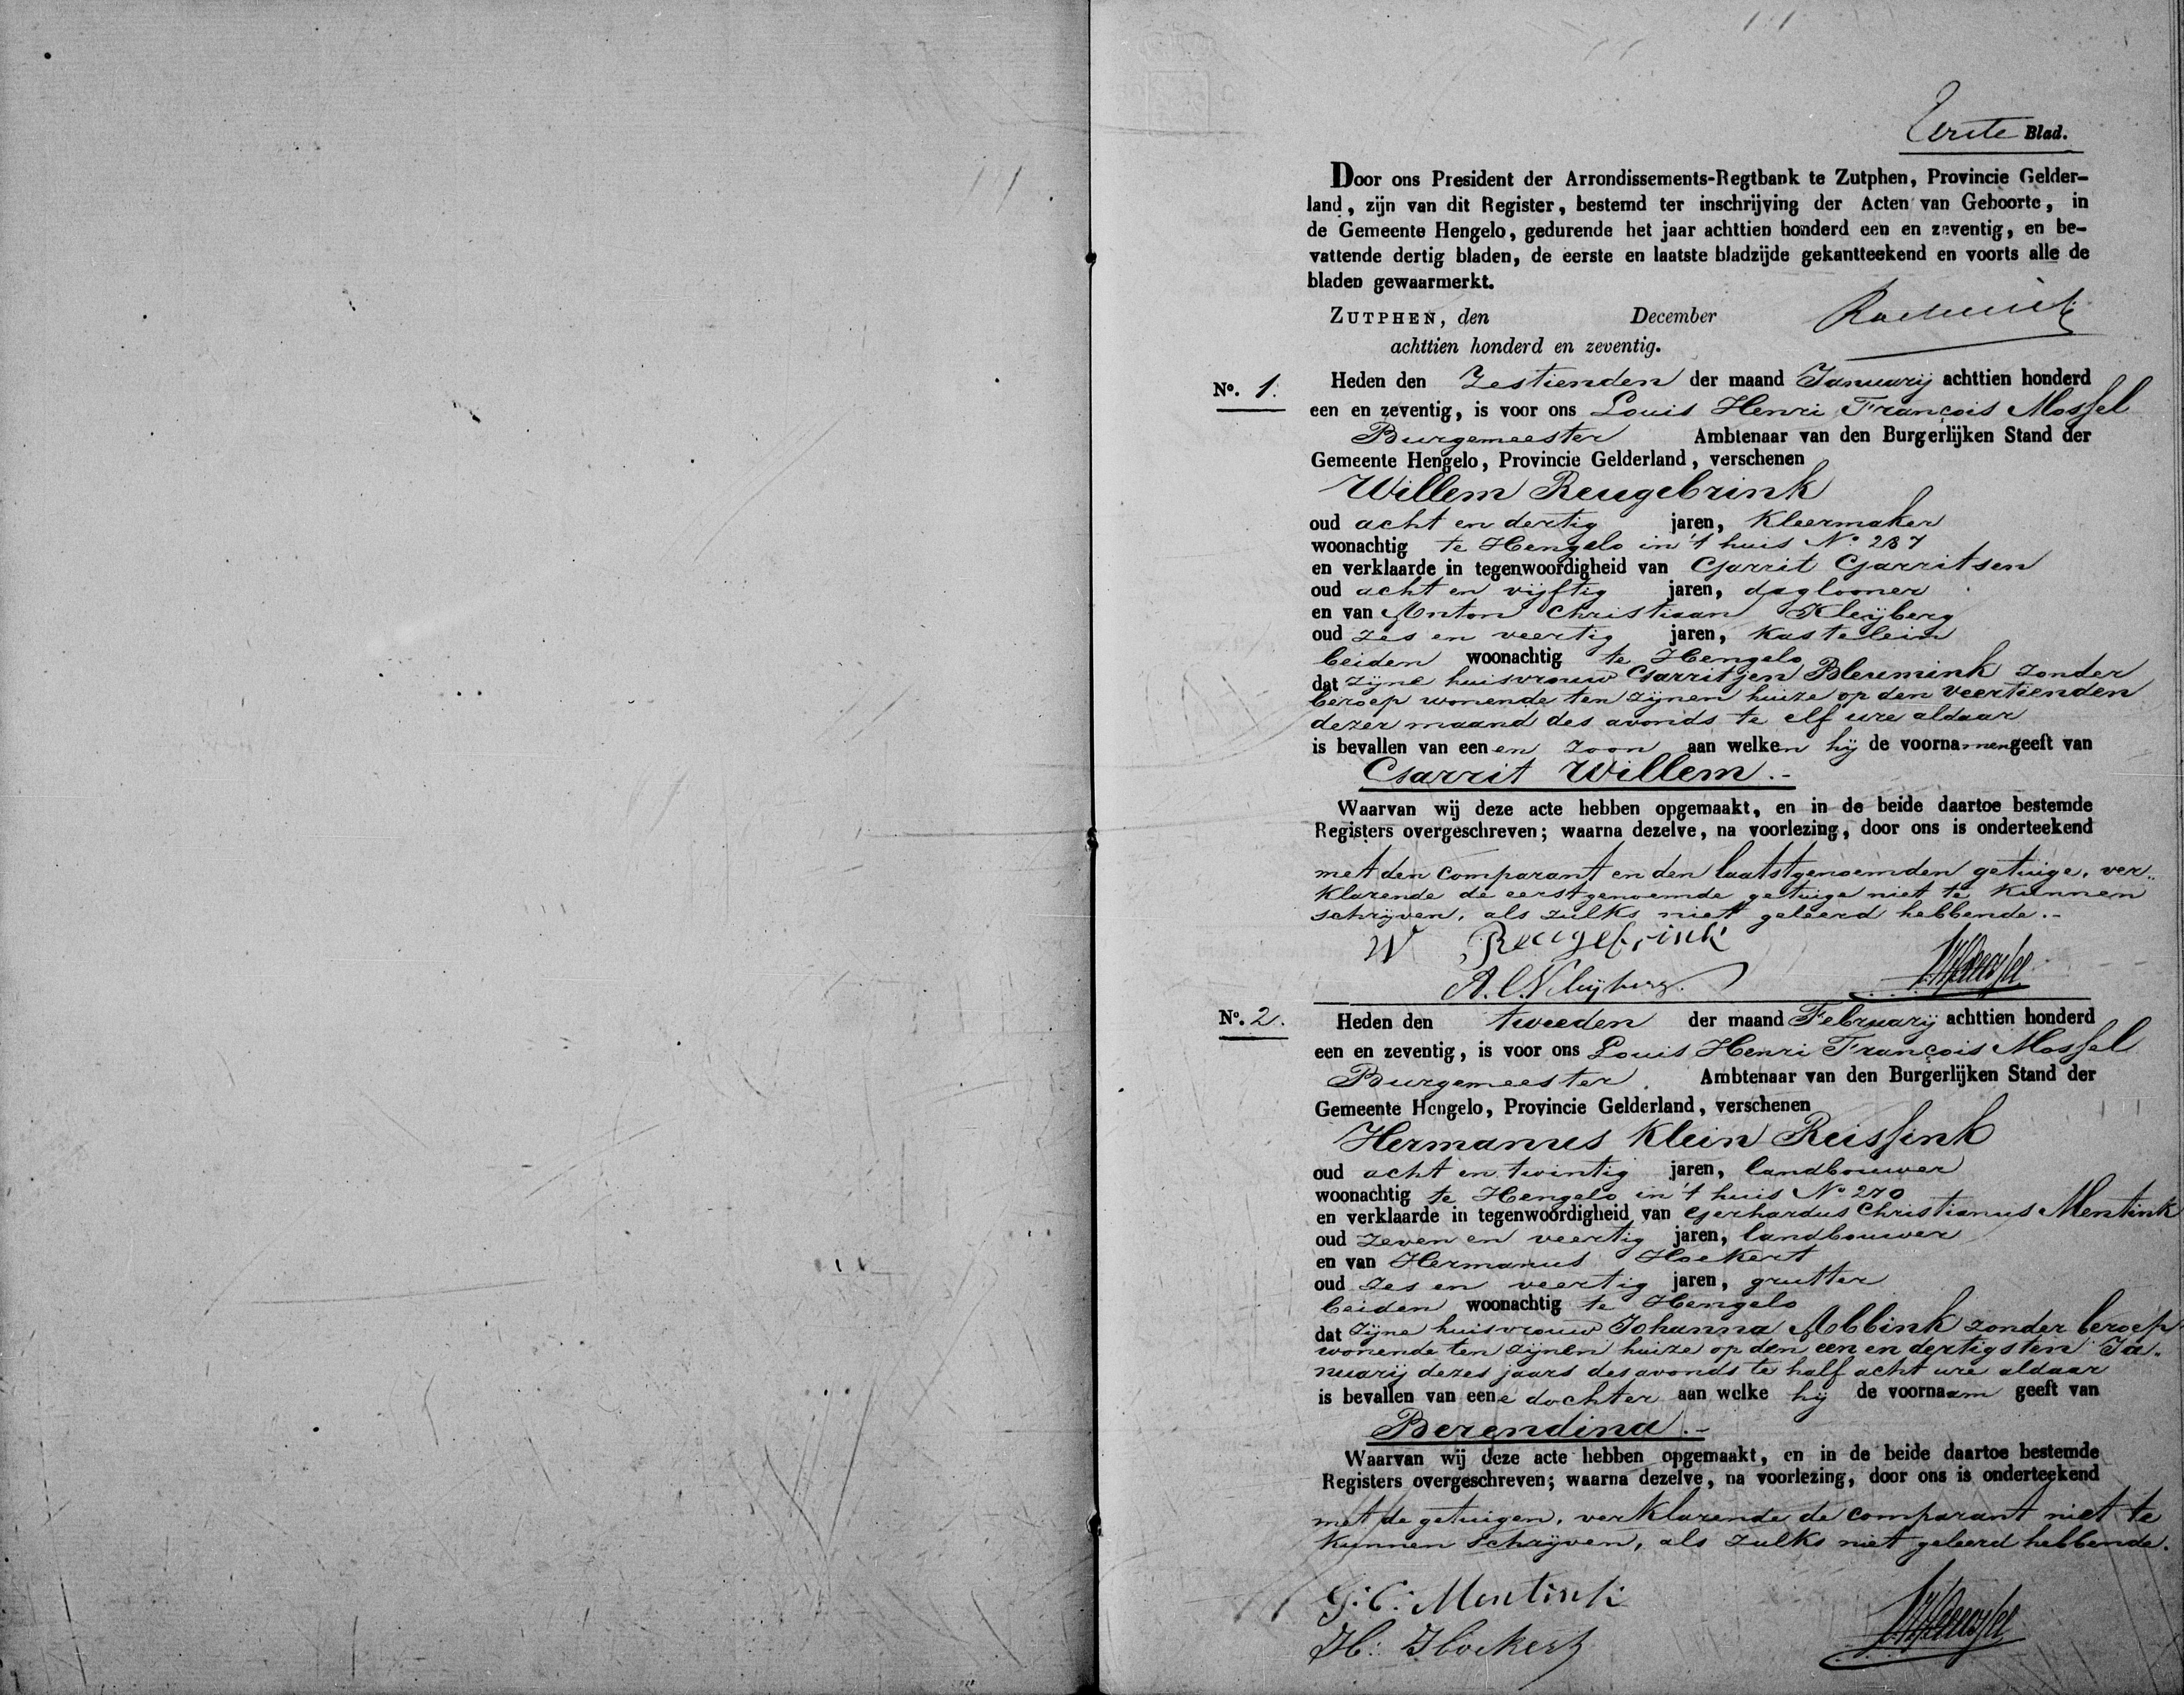 Eerste Blad.
Door ons President der Arrondissements-Regtbank te Zutphen, Provincie Gelder-
land, zijn van dit Register, bestemd ter inschrijving der Acten van Geboorte, in
de Gemeente Hengelo, gedurende het jaar achttien honderd een en zeventig, en be-
vattende dertig bladen, de eerste en laatste bladzijde gekantteekend en voorts alle de
bladen gewaarmerkt.
ZUTPHEN, den December
achttien honderd en zeventig.
No. 1. Heden den Zestienden der maand Januarij achttien honderd
een en zeventig, is voor ons Louis Henri François Mossel
Burgemeester Ambtenaar van den Burgerlijken Stand der
Gemeente Hengelo, Provincie Gelderland, verschenen
Willem Reugebrink
oud acht en dertig jaren, Kleermaker
woonachtig te Hengelo in 't huis No. 237
en verklaarde in tegenwoordigheid van Garrit Garritsen
oud acht en vijftig jaren, daglooner
en van Anton Christiaan Kleijberg
oud zes en veertig jaren, Kastelein
beiden woonachtig te Hengelo
dat zijne huisvrouw Garritjen Bleumink zonder
beroep wonende ten zijnen huize op den veertienden
dezer maand des avonds te elf ure aldaar
is bevallen van eenen zoon aan welken hij de voornamen geeft van
Garrit Willem.-
Waarvan wij deze acte hebben opgemaakt, en in de beide daartoe bestemde
Registers overgeschreven; waarna dezelve, na voorlezing, door ons is onderteekend
met den comparant en den laatstgenoemden getuige, ver-
klarende de eerstgenoemde getuige niet te kunnen
schrijven, als zulks niet geleerd hebbende.-
W Reugebrink
A. C. Kleijberg.
No. 2. Heden den tweeden der maand Februarij achttien honderd
een en zeventig, is voor ons Louis Henri François Mossel
Burgemeester. Ambtenaar van den Burgerlijken Stand der
Gemeente Hengelo, Provincie Gelderland, verschenen
Hermanus Klein Reissink
oud acht en twintig jaren, landbouwer
woonachtig te Hengelo in 't huis No 270
en verklaarde in tegenwoordigheid van Gerhardus Christianus Mentink
oud zeven en veertig jaren, landbouwer
en van Hermanus Hoekert
oud zes en veertig jaren, grutter
beiden woonachtig te Hengelo
dat zijne huisvrouw Johanna Abbink zonder beroep
wonende ten zijnen huize op den een en dertigsten Ja-
nuarij dezes jaars des avonds te half acht ure aldaar
is bevallen van eene dochter aan welke hij de voornaam geeft van
Berendina.-
Waarvan wij deze acte hebben opgemaakt, en in de beide daartoe bestemde
Registers overgeschreven; waarna dezelve, na voorlezing, door ons is onderteekend
met de getuigen, verklarende de comparant niet te
kunnen schrijven, als zulks niet geleerd hebbende.
G: C: Mentink
H: Hoekert